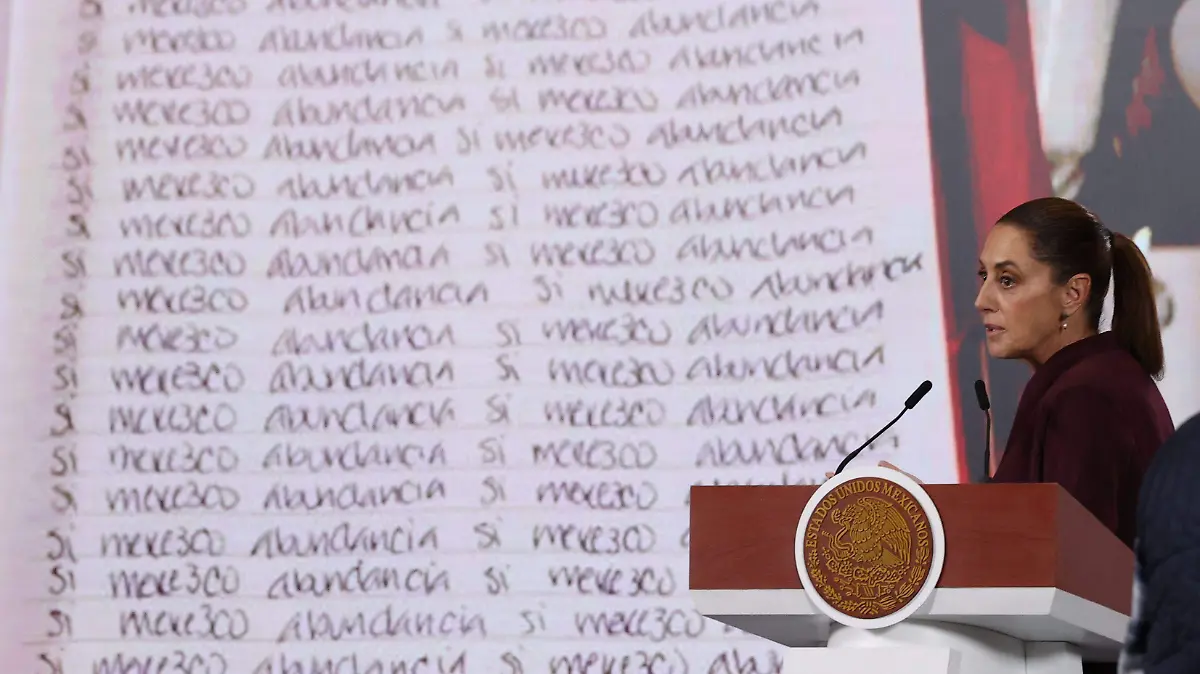 si merezco abundancia
si merezco abundancia si merezco abundancia
si merezco abundancia si merezco abundancia
si merezco abundancia si merezco abundancia
si merezco abundancia si merezco abundancia
si merezco abundancia si merezco abundancia
si merezco abundancia si merezco abundancia
si merezco abundancia si merezco abundancia
si merezco abundancia si merezco abundancia
si merezco abundancia si merezco abundancia
si merezco abundancia si merezco abundancia
si merezco abundancia si merezco abundancia
si merezco abundancia si merezco abundancia
si merezco abundancia si merezco
si merezco abundancia si merezco
si merezco abundancia si merezco
si merezco abundancia si merezco
si merezco abundancia si merezco
ESTADOS UNIDOS MEXICANOS